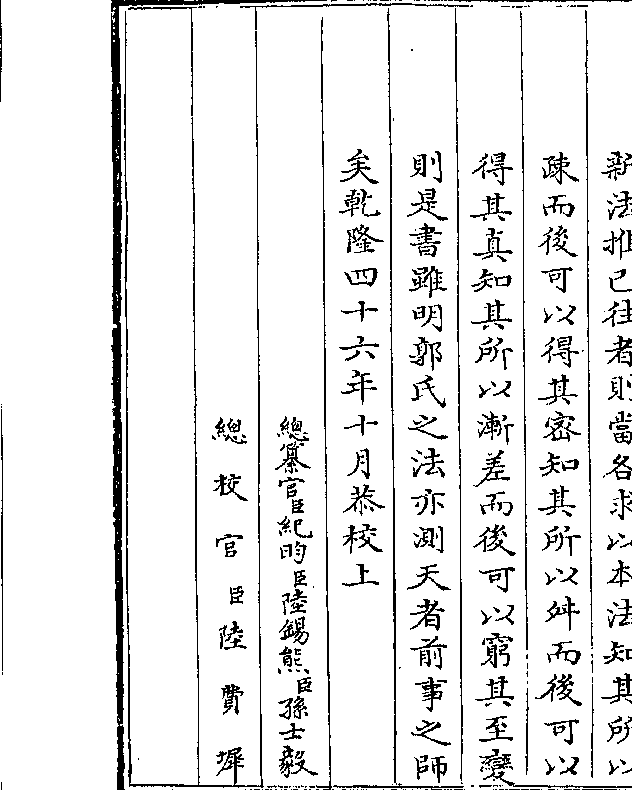 新法推已往者則當各求以本法知其所以
疎而後可以得其密知其所以舛而後可以
得其真知其所以漸差而後可以窮其至變
則是書雖明郭氏之法亦測天者前事之師
矣乾隆四十六年十月恭校上
總纂官臣紀昀臣陸錫熊臣孫士毅
總校官臣陸費墀